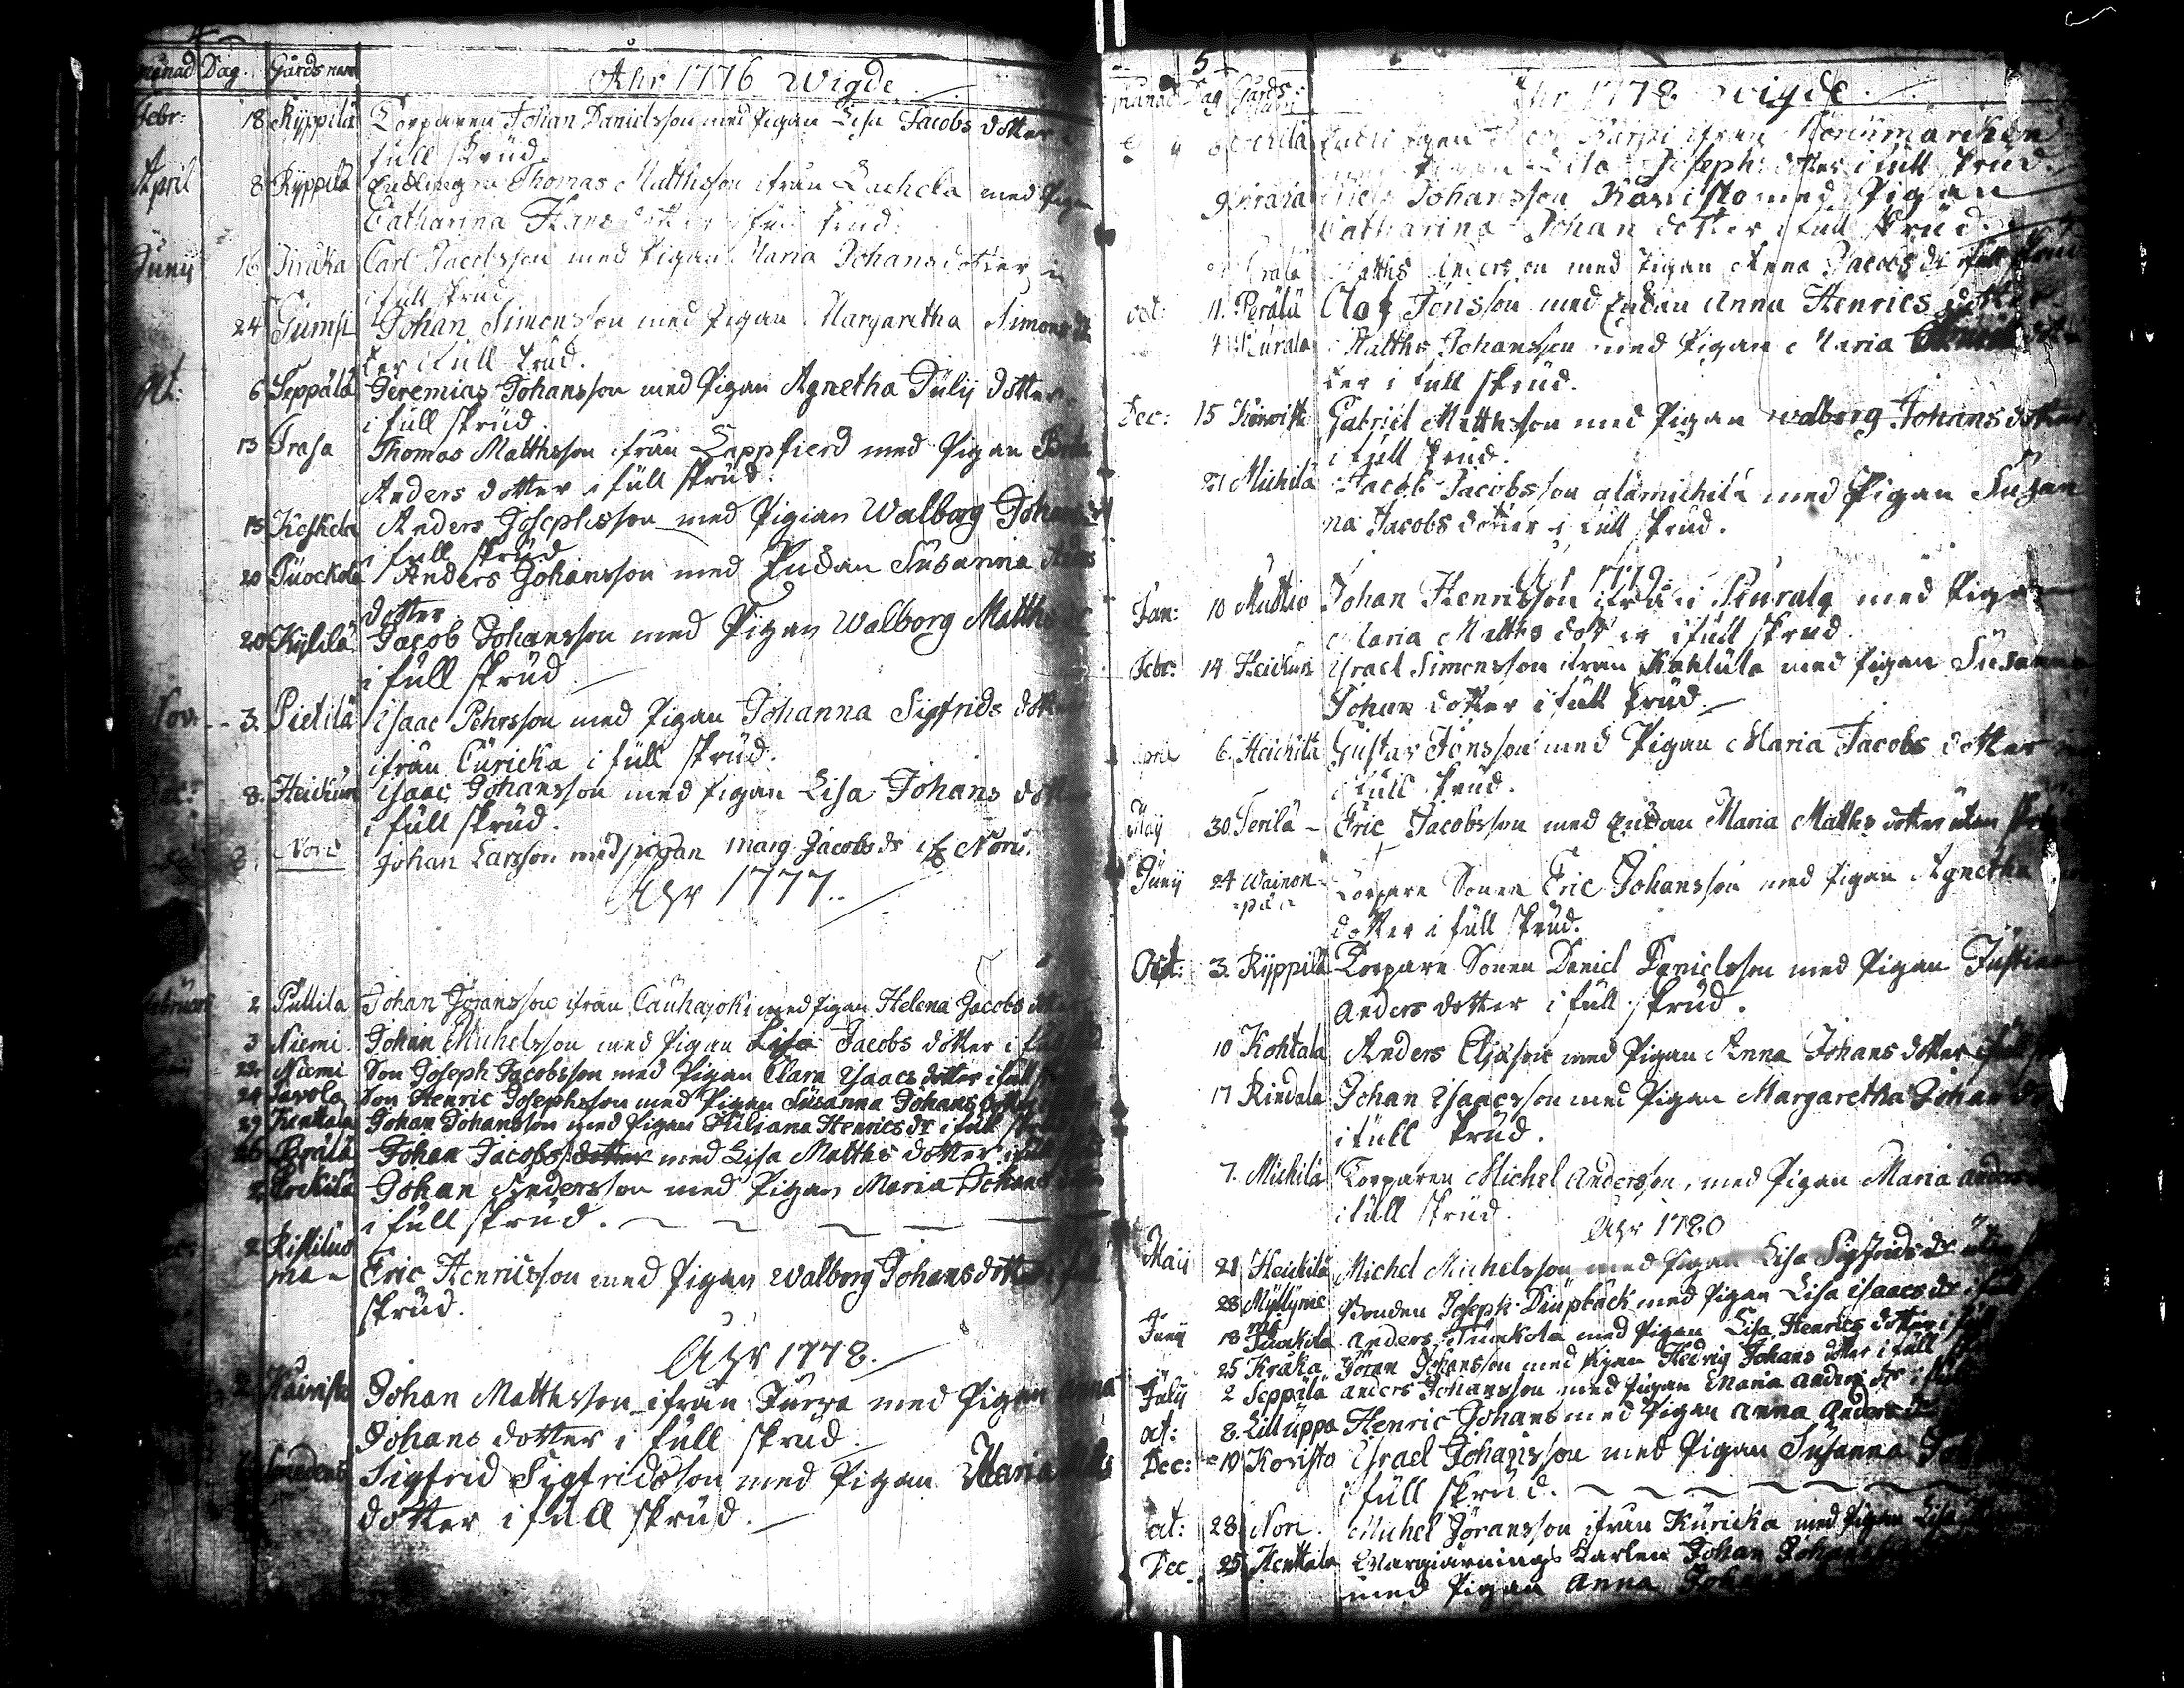 4
månad Dag. Gårds namn
Åhr 1776 Wigde
Febr: 18 Ryppilä Torparen Johan Danielsson med Pigan Lisa Jacobs dotter i
full skrud.
April 8 Ryppilä Enklingen Thomas Matthsson ifrån med Pigan
Catharina Hans dotter i full skrud.
Junij 16 Piruka Carl Jacobsson med Pigan Maria Johans dotter
i full skrud
24 Tumsi Johan Simonsson med Pigan Margaretha Simons dot
ter i full skrud.
Oct: 6 Seppälä Jeremias Johansson med Pigan Agnetha Julij dotter
i full skrud.
13 Trasa Thomas Matthsson ifrån Lappfierd med Pigan
Anders dotter i full skrud.
15 Koskela Anders Josephsson med Pigan Walborg Johans dr
i full skrud
20 Tuockola Anders Johansson med Enckan Susanna
dotter
20 Kylilä Jacob Johansson med Pigan Walborg Matths dr
i full skrud
Nov. 3. Pietilä Isaac Pehrsson med Pigan Johanna Sigfrids dotter
ifrån Curicka i full skrud.
8. Heickurn isaac Johansson med Pigan Lisa Johans dotter
i full skrud.
8. Nori Johan Larsson med pigan marg. Jacobs dr if Nori.
Åhr 1777.
Februari 2 Puttila Johan Jöransson ifrån Cauhajoki med Pigan Helena Jacobs dotter
3 Niemi Johan Michelsson med Pigan Lisa Jacobs dotter i full
Niemi Son Joseph Jacobsson med Pigan Clara Isaacs dotter i full
24 Savola Son Henric Josephsson med Pigan Susanna Johans dotter
29 Kenttala Johan Johansson med Pigan Juliana Henrics dr i full
26 Perälä Johan Jacobs dotter med Lisa Matths dotter i full
2 Prckilä Johan Andersson med Pigan Maria Johans
i full skrud.
2 Ristiluo
ma Eric Henricsson med Pigan Walborg Johans dotter i full
skrud.
Åhr 1778.
Koivisto Johan Matthsson ifrån Jurva med Pigan
Johans dotter i full skrud.
Sigfrid Sigfridsson med Pigan Maria
dotter i full skrud.
5
månad Dag Gårds namn
Åhr 1778 wigde.
ifrån
Josephs dotter i full skrud.
9 Johansson Koivisto med Pigan
Catharina Johan dotter i full skrud.
Matths Andersson med Pigan Anna Jacobs dr full skrud
oct: 11. Perälä Olof Jönsson med Enckan Anna Henrics dotter
Kurala Matths Johansson med Pigan Maria
ter i full skrud.
Dec: 15 Koivisto Gabriel Matthsson med Pigan walborg Johans dotter
i full skrud.
21 Michilä Jacob Jacobsson alamichilä med Pigan Susan
na Jacobs dotter i full skrud.
Åhr 1779
Jan: 10 Muttio Johan Henricsson ifrån Kurala med Pigan
Maria Matths dotter i full skrud.
Febr: 14 Heickur Israel Simonsson ifrån med Pigan Susanna
Johan dotter i full skrud.
April 6. Heickilä Gustav Jönsson med Pigan Maria Jacobs dotter
i full skrud.
May 30. Perilä Eric Jacobsson med Enckan Maria Matths dotter utan
Junij 24 Wainon
pää Torpare Sonen Eric Johansson med Pigan Agnetha
dotter i full skrud.
Oct: 3. Ryppilä Torpare Sonen Daniel Danielsson med Pigan Justina
Anders dotter i full skrud.
10 Kohtala Anders Eliasson med Pigan Anna Johans dotter i full
17 Rindala Johan Isaacsson med Pigan Margaretha Johan
i full skrud.
7. Michilä Torparen Michel Andersson, med Pigan Maria anders
i full skrud.
Åhr 1780
Maij 21 Heickilä Michel Michelsson med Pigan Lisa Sigfrids dr utan
28 Myllynie
mi Bonden Joseph Diupbäck med Pigan Lisa isaacs dr i full
Junij 18 Tuokila Anders Tuokola med Pigan Lisa Henrics dotter i full
25 Kråka Jöran Johansson med Pigan Hedvig Johans dotter i full
Julij 2 Seppälä anders Johansson med Pigan Maria anders dr i full
oct: 8. Lilluppa Henric Johans med Pigan anna anders dr
Dec: 10 Koristo Israel Johansson med Pigan Susanna Joh
i full skrud.
oct: 28 Nori. Michel Jöransson ifrån Kuricka med Pigan Lisa
Dec 25 Kenttala Wargiärnings Karlen Johan Johans
med Pigan Anna Joh